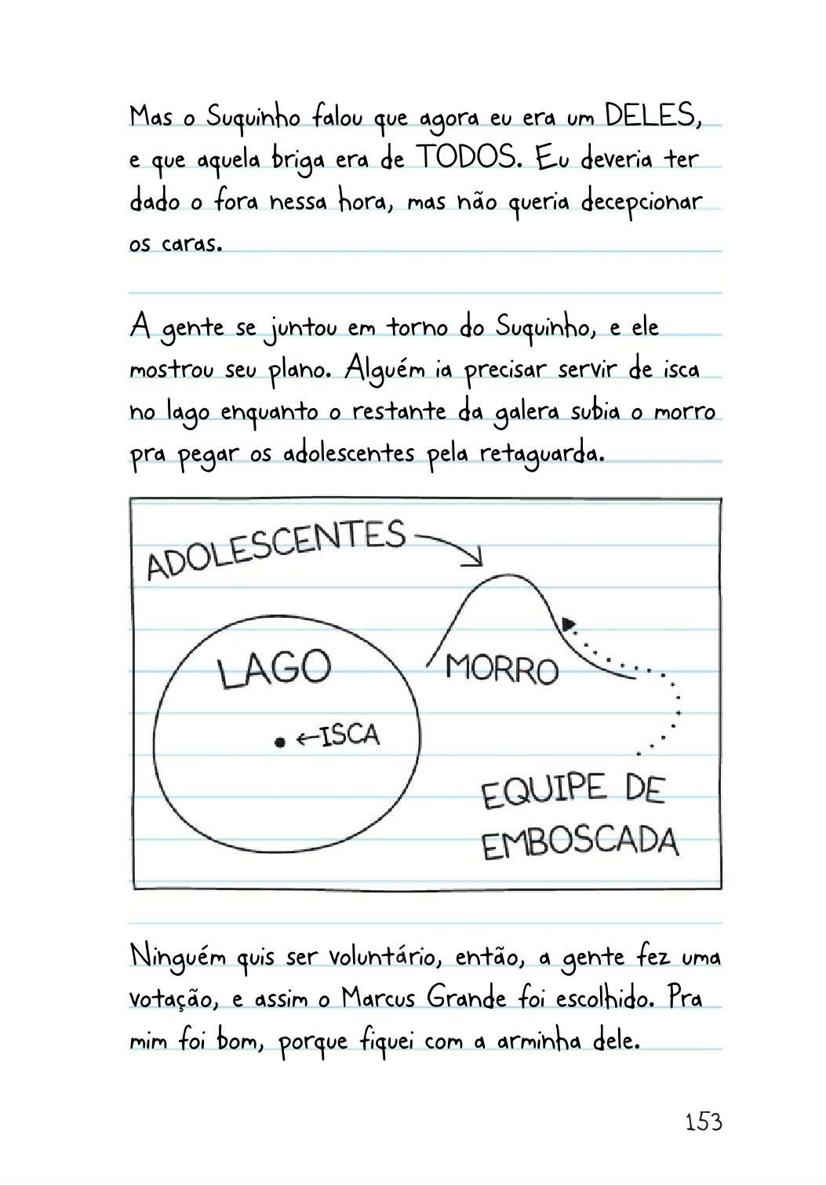 Mas o Suquinho falou que agora eu era um DELES,
e que aquela briga era de TODOS. Eu deveria ter
dado o fora nessa hora, mas não queria decepcionar
os caras.
A gente se juntou em torno do Suquinho, e ele
mostrou seu plano. Alguém ia precisar servir de isca
no lago enquanto o restante da galera subia o morro
pra pegar os adolescentes pela retaguarda.
ADOLESCENTES
LAGO
MORRO
←ISCA
EQUIPE DE
EMBOSCADA
Ninguém quis ser voluntário, então, a gente fez uma
votação, e assim o Marcus Grande foi escolhido. Pra
mim foi bom, porque fiquei com a arminha dele.
153